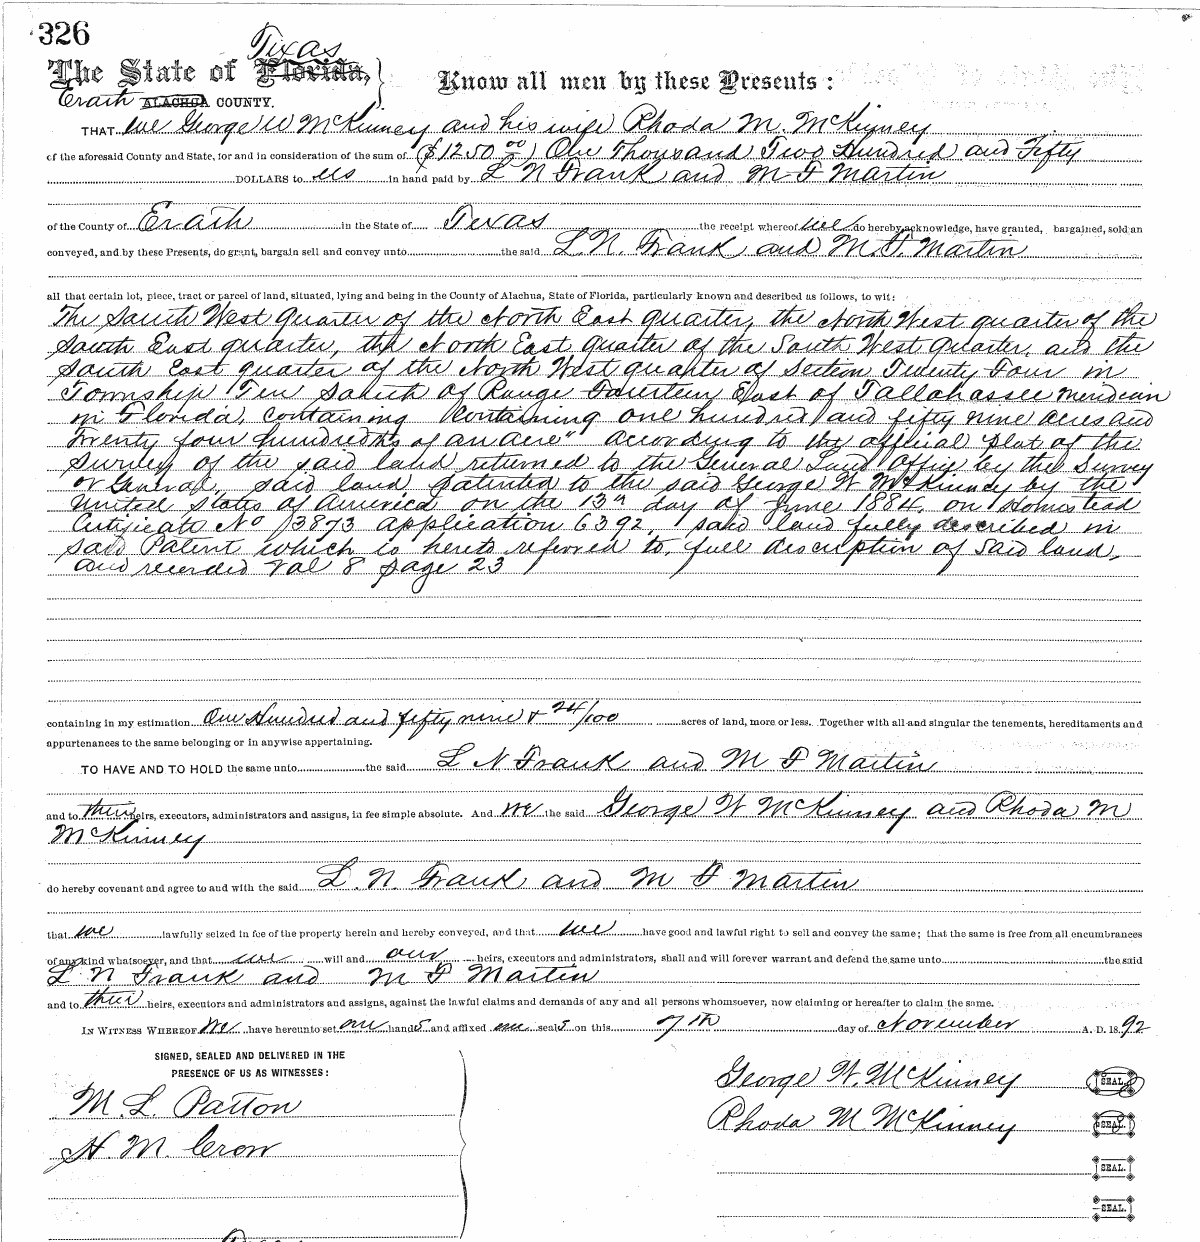 326
Texas
The State of Florida,
Erath ALACHUA COUNTY.
Know all men by these Presents:
THAT We George W McKinney and his wife Rhoda M. McKinney
of the aforesaid County and State, for and in consideration of the sum of ($1250.00) One Thousand Two Hundred and Fifty
DOLLARS to us in hand paid by L N Frank and M F Martin
of the County of Erath in the State of Texas the receipt whereof we do hereby acknowledge, have granted, bargained, sold an
conveyed, and by these Presents, do grant, bargain sell and convey unto the said L. N. Frank and M. F. Martin
all that certain lot, piece, tract or parcel of land, situated, lying and being in the County of Alachua, State of Florida, particularly known and described as follows, to wit:
The South West quarter of the North East quarter, the North West quarter of the
South East quarter, the North East quarter of the South West quarter, and the
South East quarter of the North West quarter of Section Twenty Four in
Township Ten South of Range Fourteen East of Tallahassee meridian
in Florida, containing "containing one hundred and fifty nine acres and
Twenty four hundredths of an acre" according to the official plat of the
Survey of the said land returned to the General Land Office by the Survey
or General, said land patented to the said George W McKinney by the
United States of America on the 13th day of June 1884, on Homestead
Certificate No 3873 application 6392, said land fully described in
said Patent which is hereto referred to, full description of said land,
and recorded Vol 8 page 23
containing in my estimation One Hundred and fifty nine & 24/100 acres of land, more or less. Together with all and singular the tenements, hereditaments and
appurtenances to the same belonging or in anywise appertaining.
TO HAVE AND TO HOLD the same unto the said L N Frank and M F Martin
and to their heirs, executors, administrators and assigns, in fee simple absolute. And We the said George W McKinney and Rhoda M
McKinney
do hereby covenant and agree to and with the said L. N. Frank and M F Martin
that we lawfully seized in fee of the property herein and hereby conveyed, and that we have good and lawful right to sell and convey the same; that the same is free from all encumbrances
of any kind whatsoever, and that we will and our heirs, executors and administrators, shall and will forever warrant and defend the same unto the said
L N Frank and M F Martin
and to their heirs, executors and administrators and assigns, against the lawful claims and demands of any and all persons whomsoever, now claiming or hereafter to claim the same.
IN WITNESS WHEREOF We have hereunto set our hands and affixed our seals on this 7th day of November A. D. 1892
SIGNED, SEALED AND DELIVERED IN THE
PRESENCE OF US AS WITNESSES:
M. L. Patton
H. M. Crow
George W. McKinney SEAL.
Rhoda M McKinney SEAL.
SEAL.
SEAL.